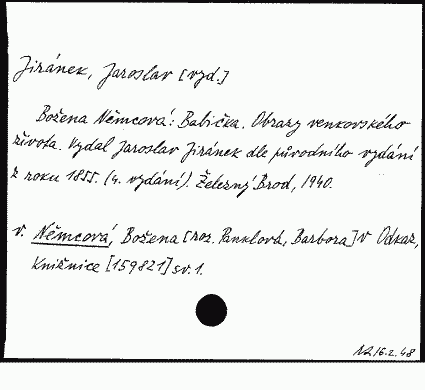 Jiránek, Jaroslav [vyd.]
Božena Němcová: Babička. Obrazy venkovského
života. Vydal Jaroslav Jiránek dle původního vydání
z roku 1855. (4. vydání). Železný Brod, 1940.
v. Němcová, Božena [roz. Panklová, Barbora] v Odkaz,
Knižnice [159821] sv. 1.
16.2.48